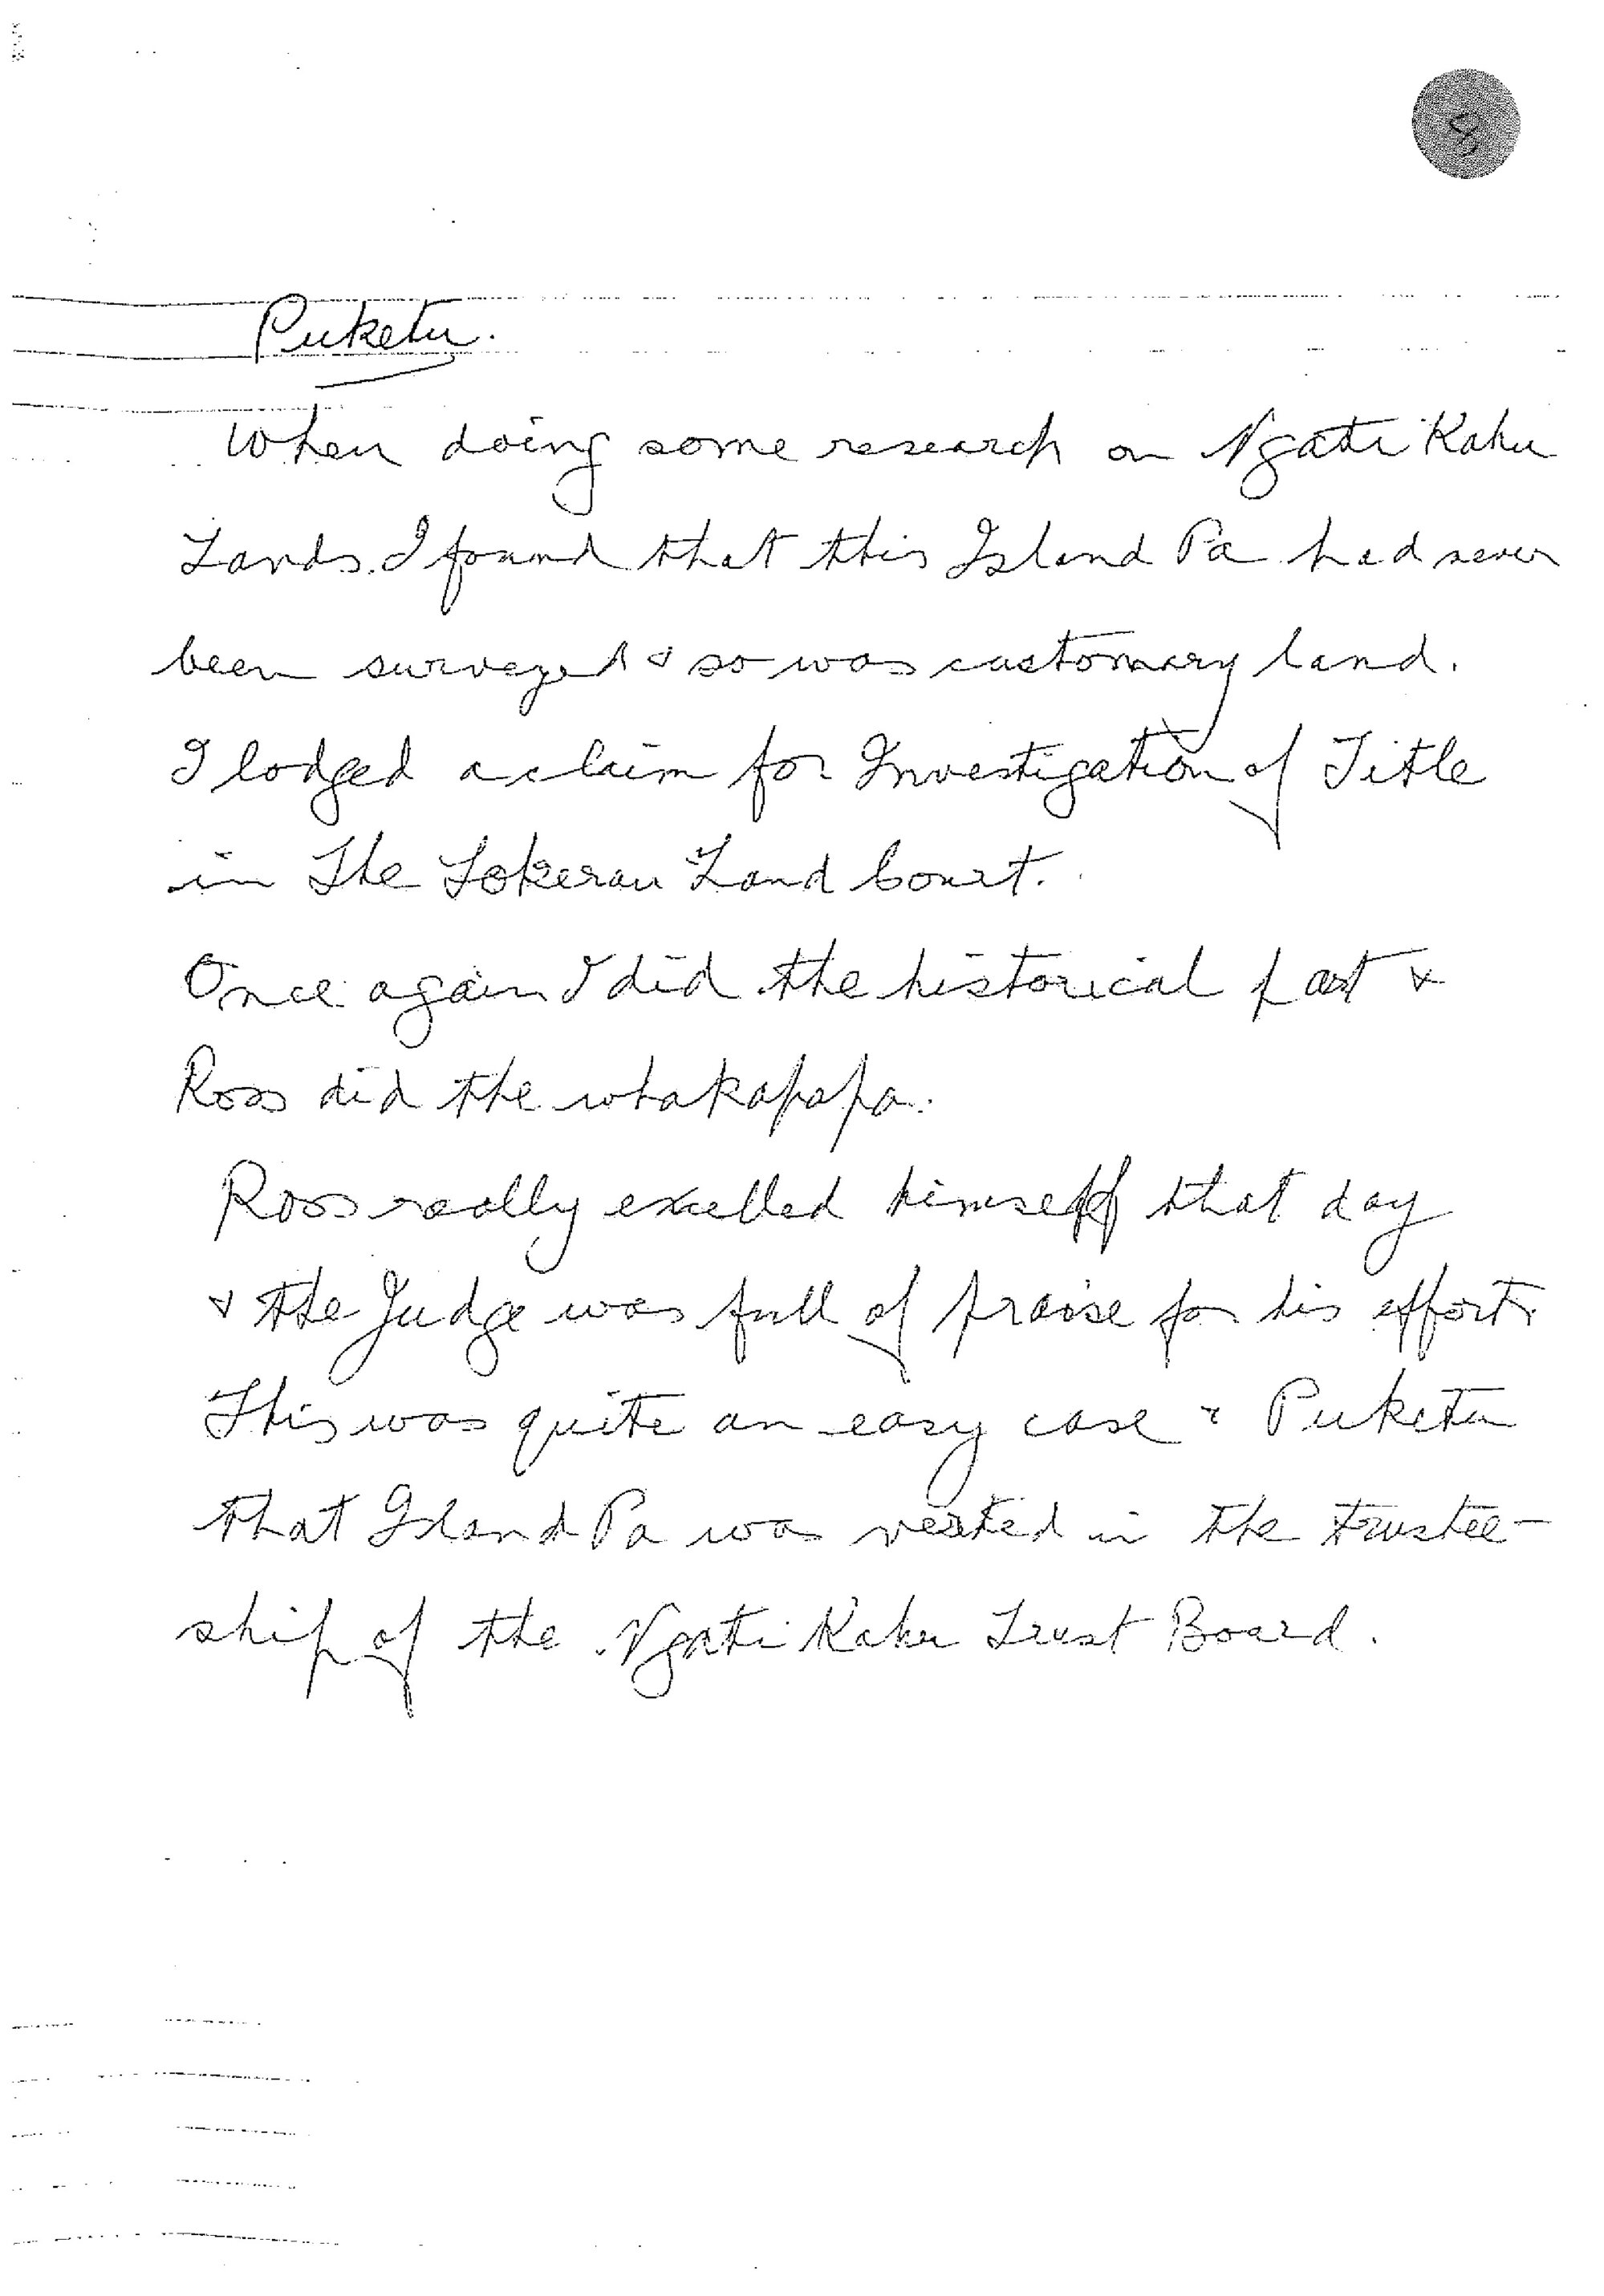 8
Puketu.
When doing some research on Ngati Kahu
Lands. I found that this Island Pa had never
been surveyed & so was customary land.
I lodged a claim for Investigation of Title
in The Tokerau Land Court.
Once again I did the historical part &
Ross did the whakapapa.
Ross really excelled himself that day
& the Judge was full of praise for his effort.
This was quite an easy case & Puketu
that Island Pa was vested in the trustee-
ship of the Ngati Kahu Trust Board.